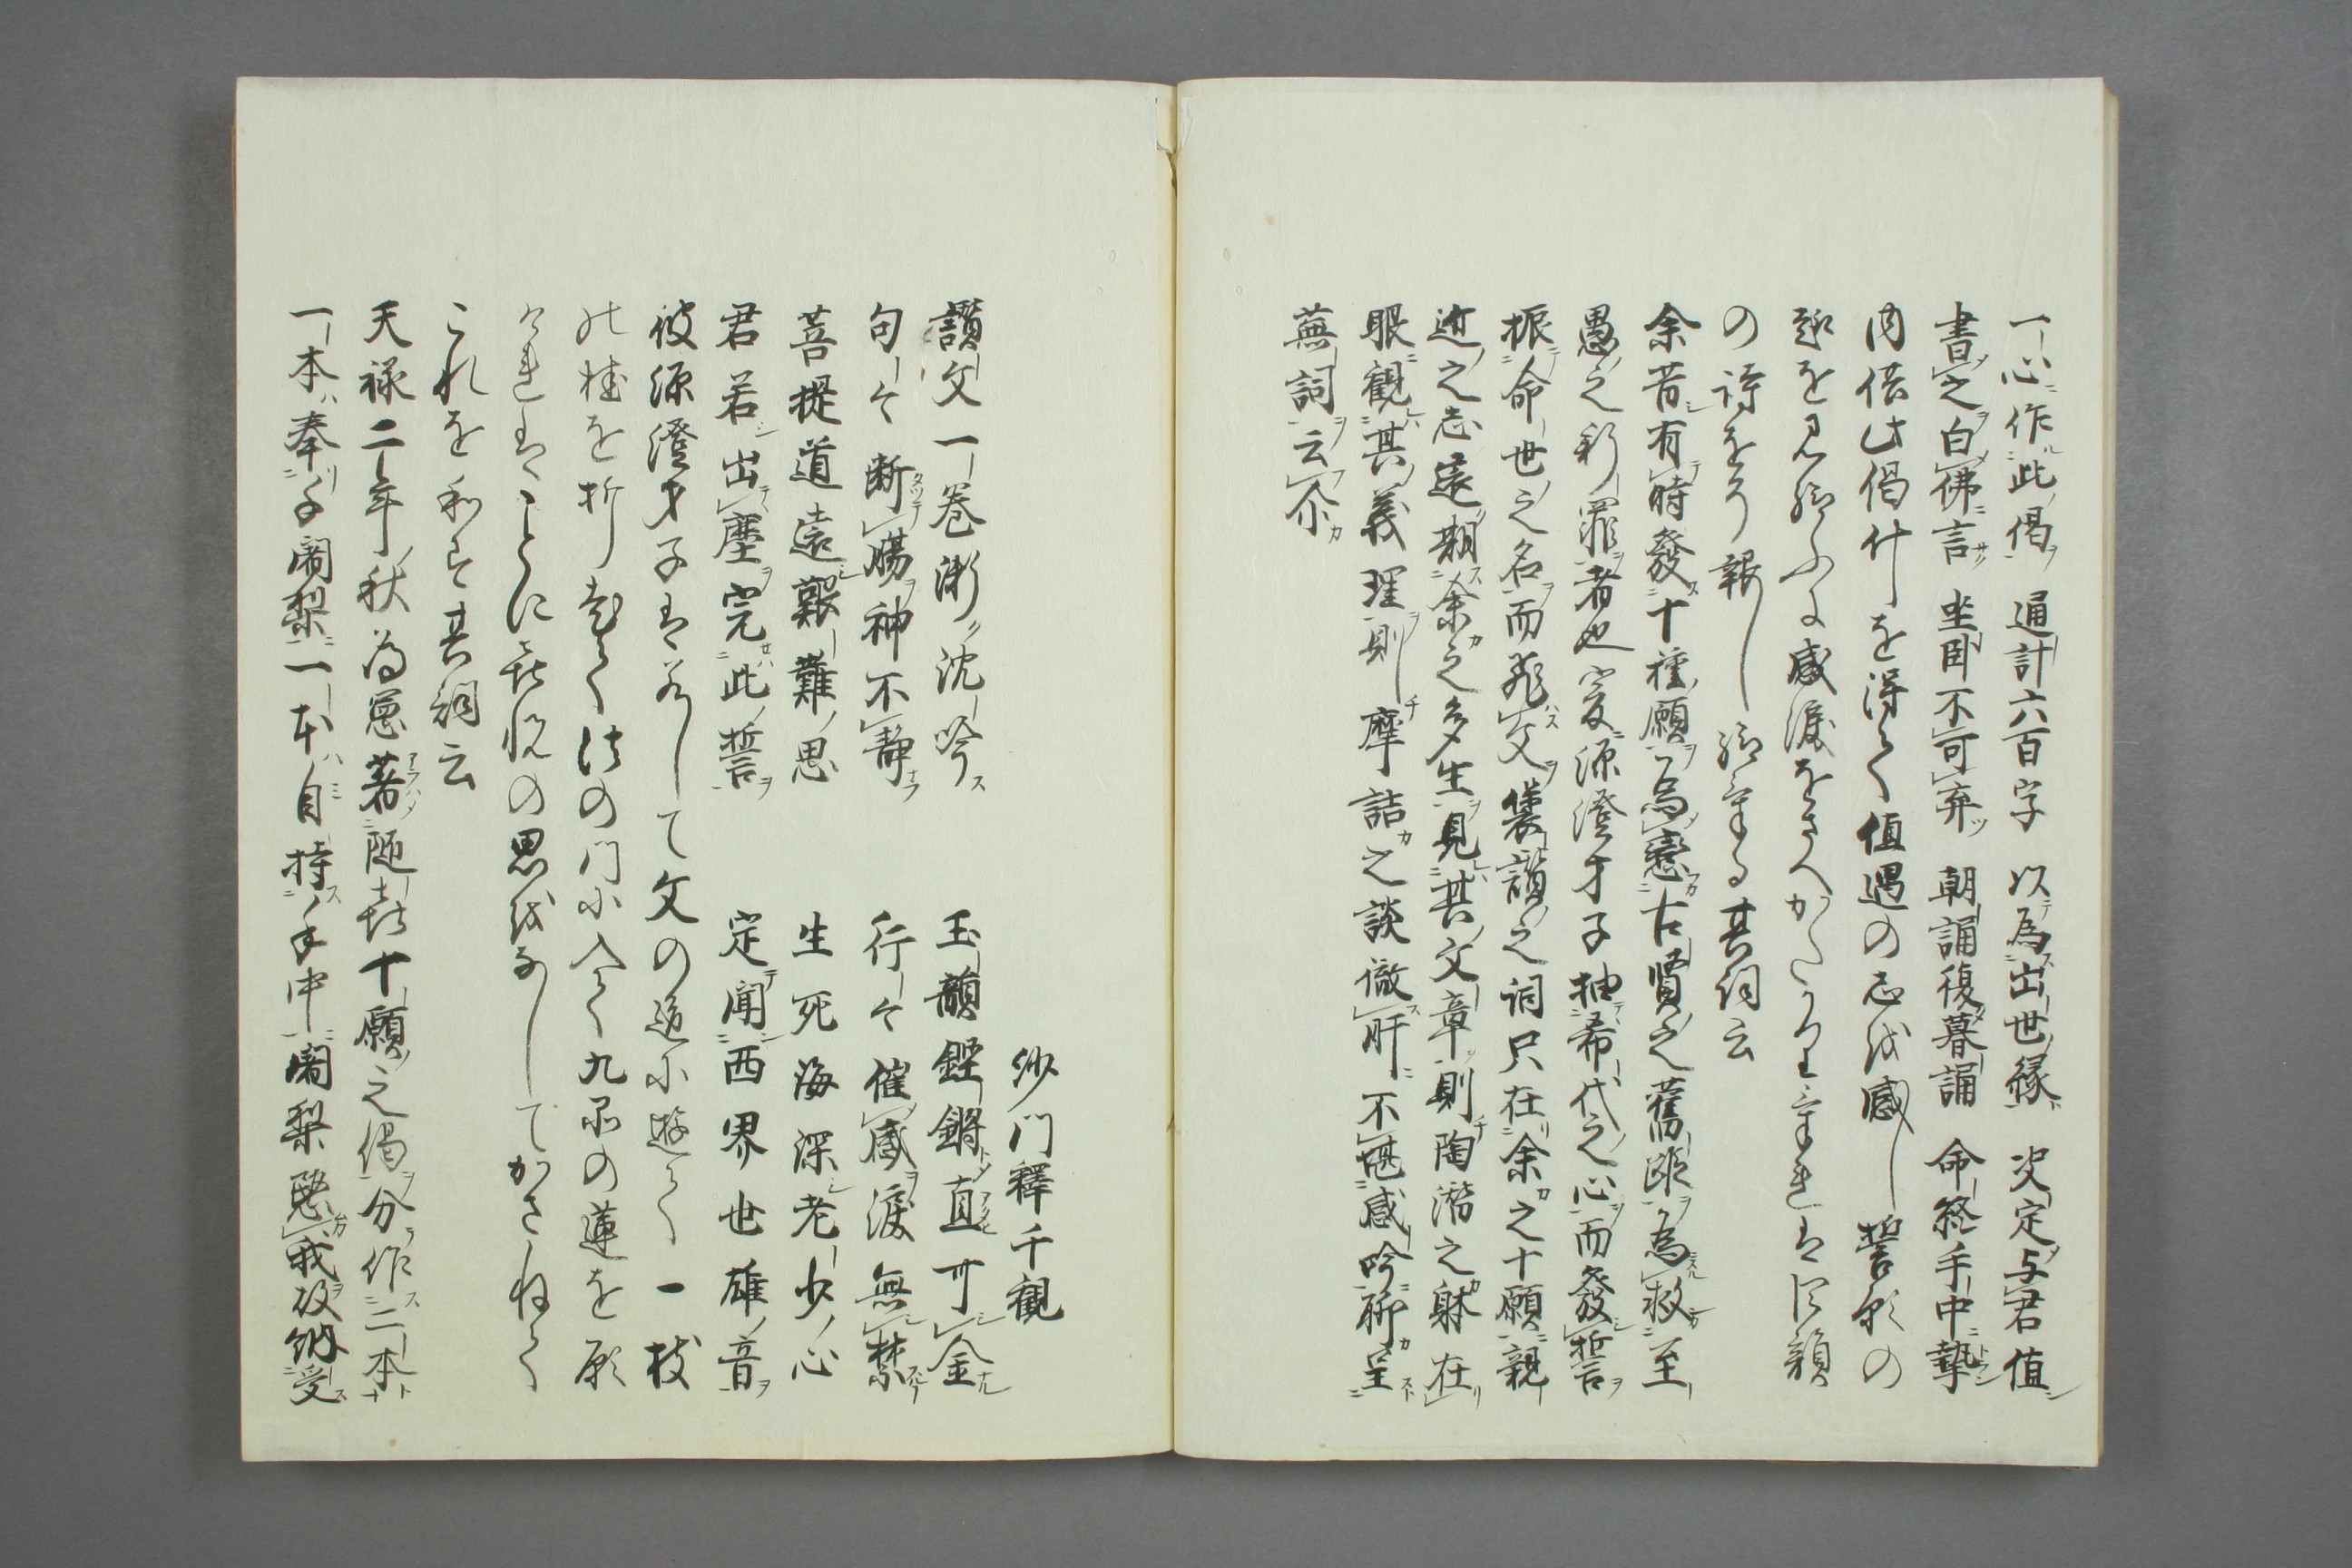 一心作此偈 通計六百字 以為出世縁 决定与君値
書之白佛言 坐臥不可弃 朝誦復暮誦 命終手中摯
内供此偈什を得て値遇の志を感し誓願の
趣を見給ふに感涙をさへかたうりまれは
の詩をつ報し給ける其詞云
余昔有時發十種願為戀古賢之舊蹤為救至
愚之彰罪者也爰源澄才子抽希代之心而發誓
振命世之名而飛文褒讃之詞只在余之十願親
近之志遠期余之多生見其文章則陶潜之躰在
眼觀其義理則摩詰之談徹肝不堪感吟聊呈
蕪詞云尒
沙門釋千觀
讃文一巻漸沈吟 玉韻鏗鏘直可金
句々断腸神不静 行々催感涙無禁
菩提道遠艱難思 生死海深老少心
君若出塵完此誓 定聞西界世雄音
彼源澄才子は若して文の道に遊て一枝
の桂を折老て法の門に入て九品の蓮を願
けれはことに喜悦の思をなしてかさねて
これを和す其詞云
天禄二年秋為憲著随喜十願之偈分作二本
一本奉千闍梨一本自持手中闍梨愍我故納受